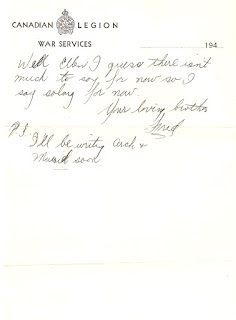 CANADIAN LEGION
WAR SERVICES
194
Well Ellen I guess there isn't
much to say for now so I
say solong for now.
Your loving brother
Fred
P.S.
I'll be writing Arch &
Muriel soon.